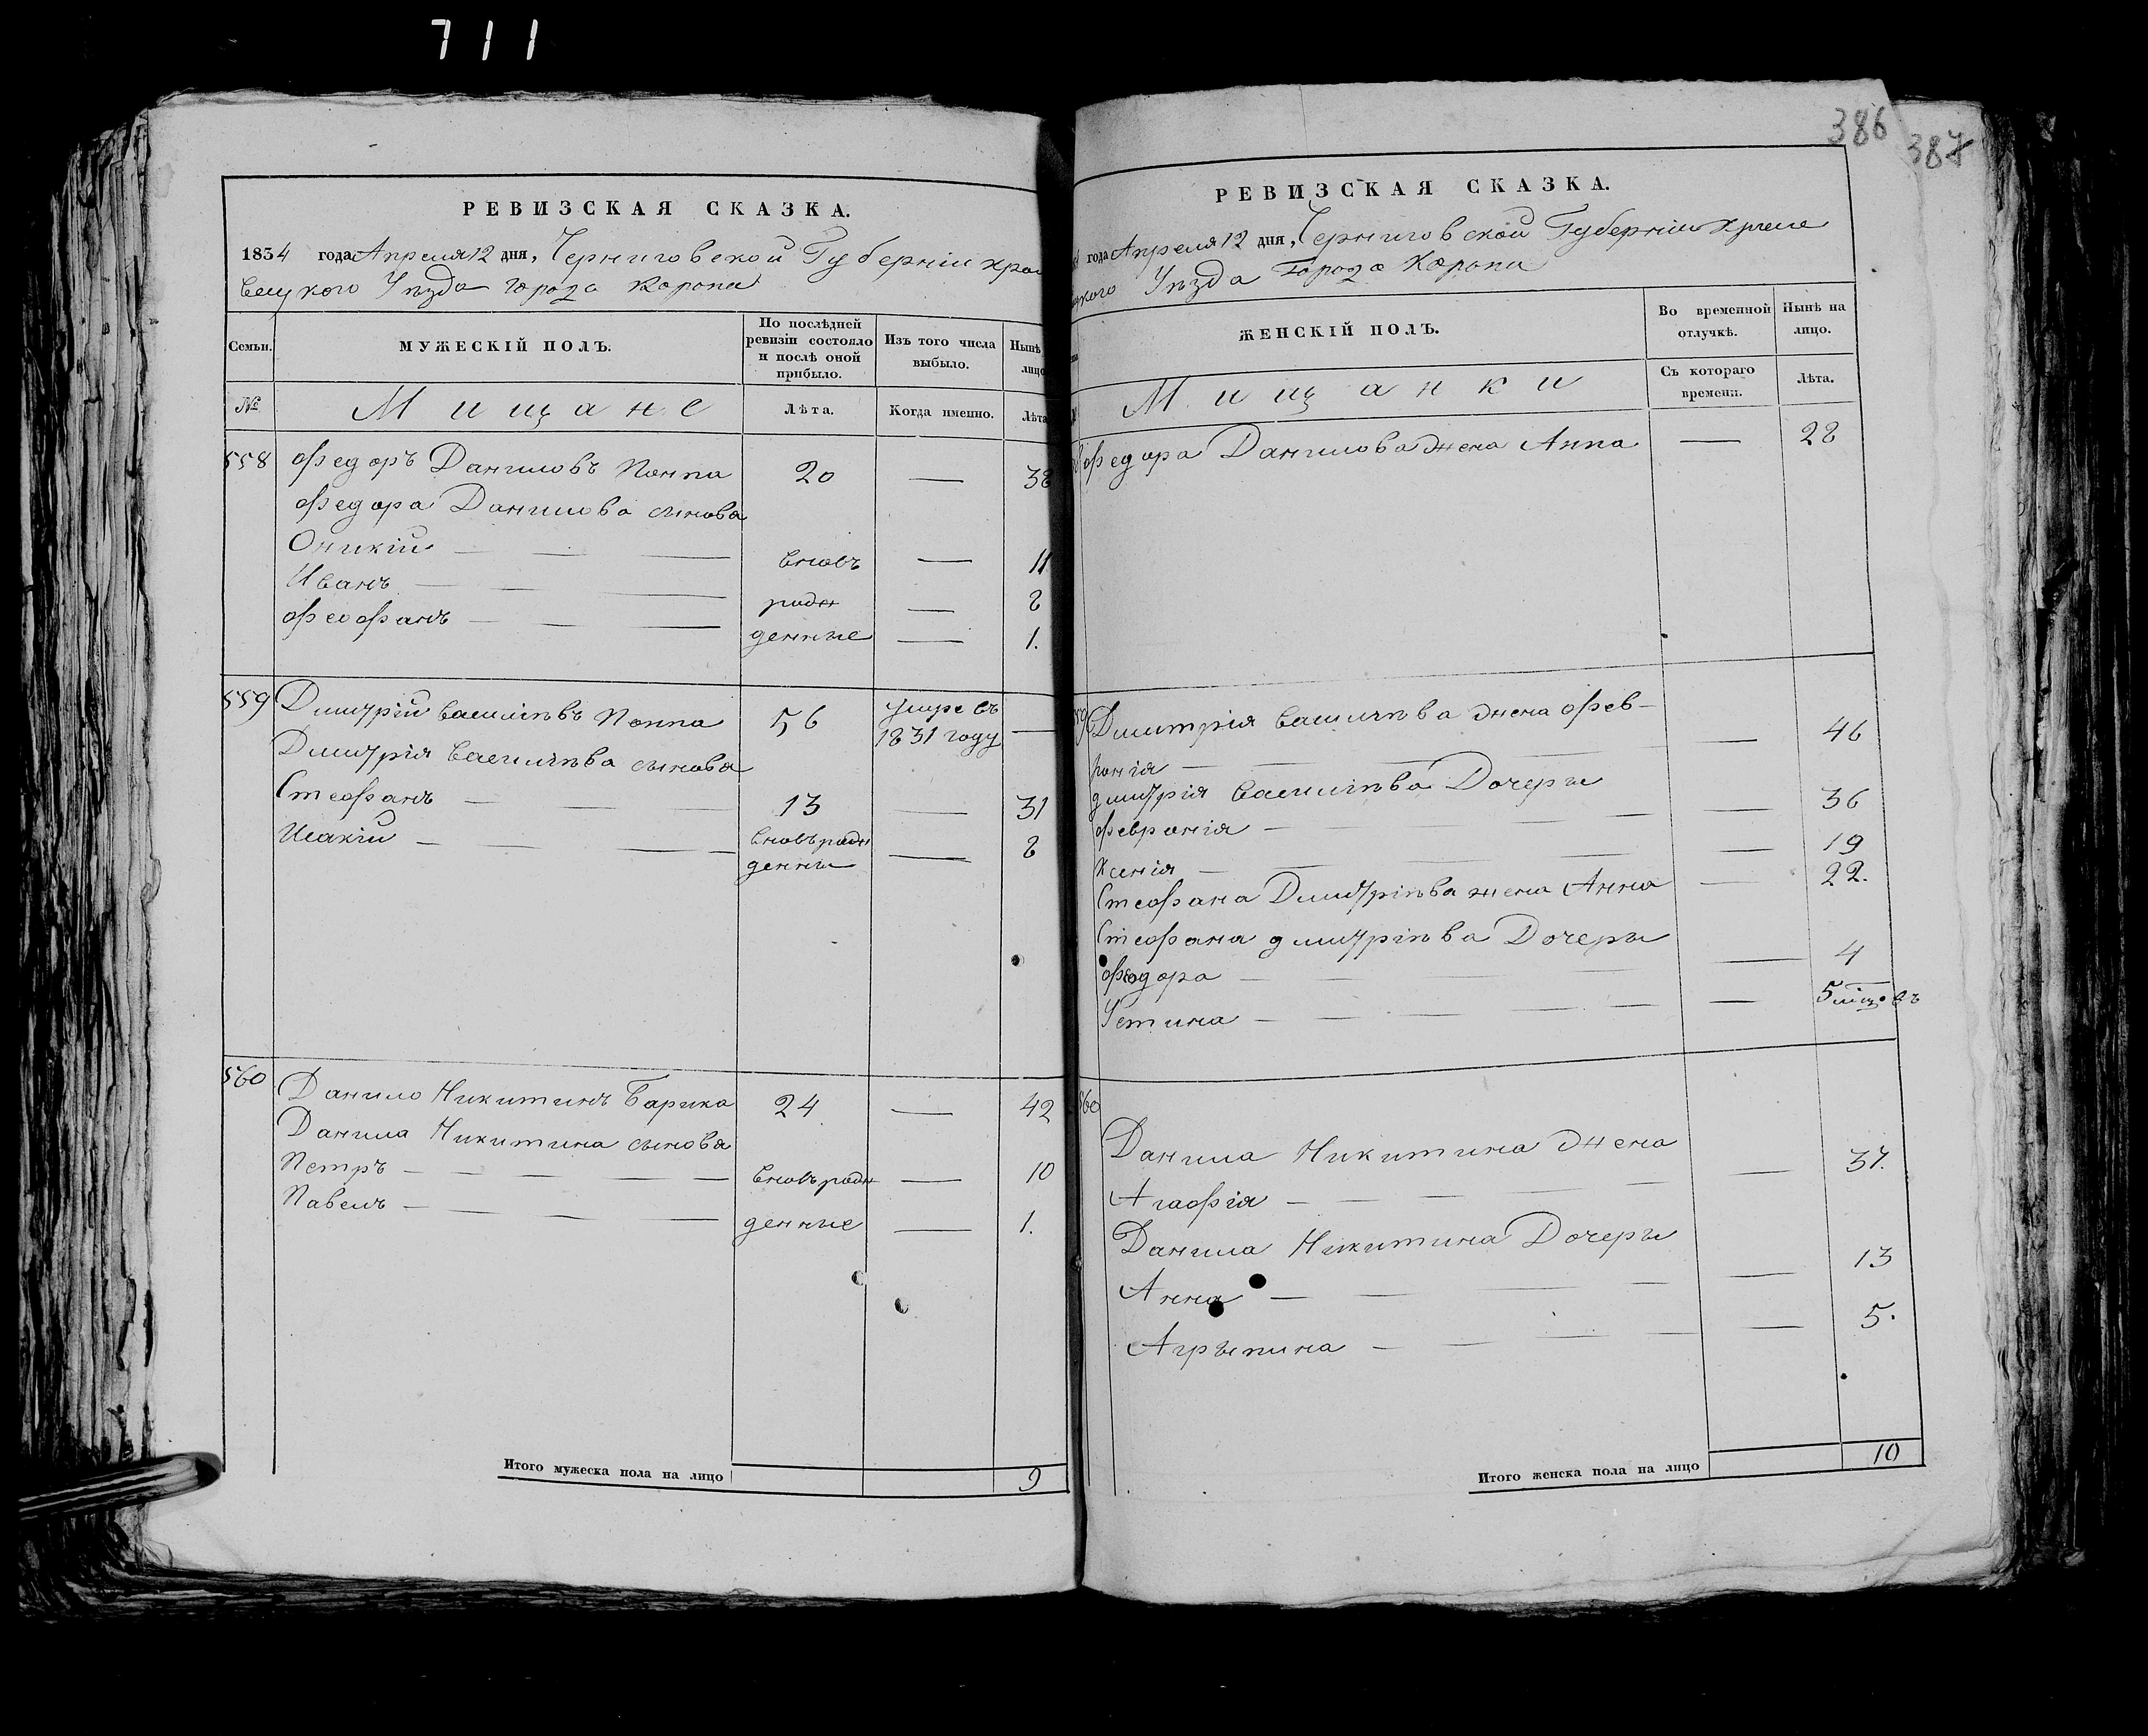 711
386
387
РЕВИЗСКАЯ СКАЗКА.
1834 года Апреля 12 дня, Черниговской Губерніи Кро
вецкого Уѣзда города Коропа
Семьи.
МУЖЕСКІЙ ПОЛЪ.
По послѣдней ревизіи состояло и послѣ оной прибыло.
Изъ того числа выбыло.
Нынѣ лицо
№
Мищане
Лѣта.
Когда именно.
Лѣта
558 Федоръ Даниловъ Поппа 20 — 38
Федора Данилова сынова
Оникій — — — вновь — 11
Иванъ — — — рож — 8
Феофанъ — — — денные — 1.
559 Дмитрій Васильевъ Поппа 56 умре въ 1831 году —
Дмитрія Васильева сынова
Стефанъ — — — 13 — 31
Исакій — — — вновь рож денны — 8
560 Данило Никитинъ Барика 24 — 42
Данила Никитина сынова
Петръ — — — вновь рож — 10
Павелъ — — — денные — 1.
Итого мужеска пола на лицо 9
РЕВИЗСКАЯ СКАЗКА.
года Апреля 12 дня, Черниговской Губерніи Кроле
цкого Уѣзда Города Коропа
ЖЕНСКІЙ ПОЛЪ.
Во временной отлучкѣ.
Нынѣ на лицо.
Мищанки
Съ котораго времени.
Лѣта.
Федора Данилова жена Анна — 28
Дмитрія Васильева жена Фев-
ронія — — — 46
Дмитрія Васильева Дочеры
Февронія — — — 36
Ксенія — — — 19
Стефана Дмитріева жена Анна — 22.
Стефана Дмитріева Дочеры
Федора — — — 4
Устина — — — 5 міцовъ
560
Данила Никитина жена
Агафія — — — 37.
Данила Никитина Дочеры
Анна — — — 13
Агрыпина — — — 5.
Итого женска пола на лицо 10